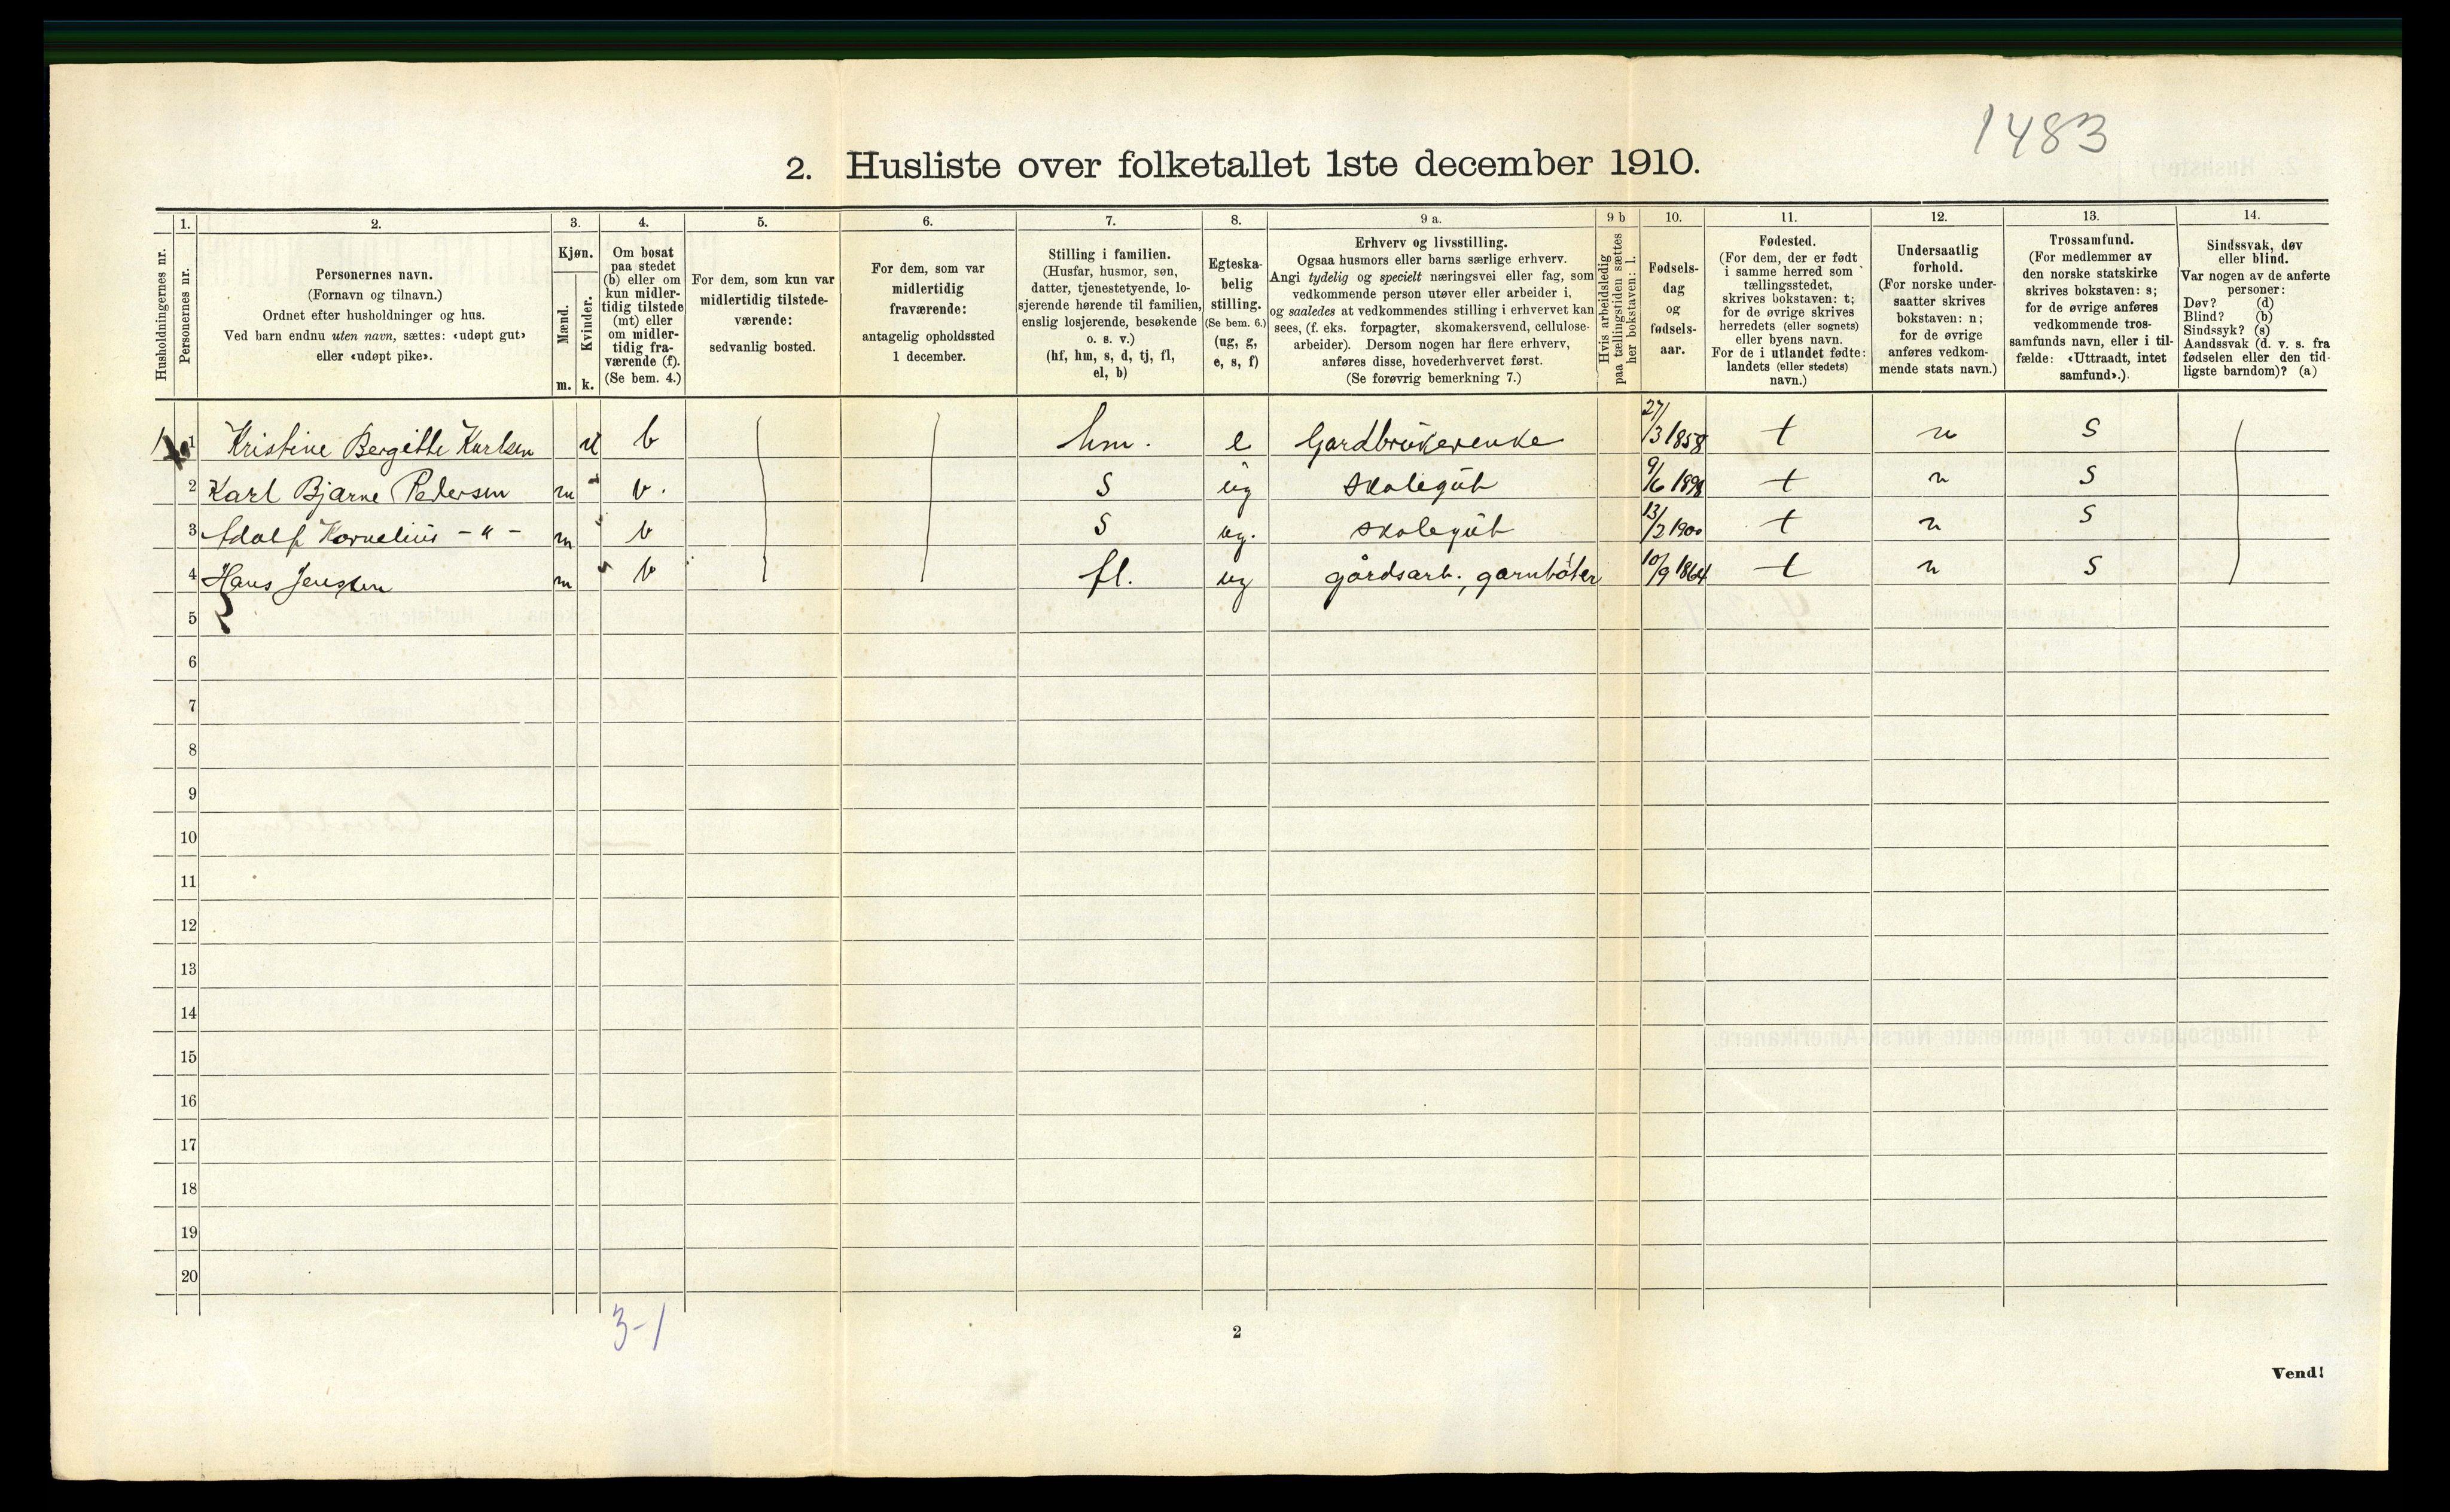 1483
2. Husliste over folketallet 1ste december 1910.
Husholdningernes nr.
1.
Personernes nr.
2.
Personernes navn.
(Fornavn og tilnavn.)
Ordnet efter husholdninger og hus.
Ved barn endnu uten navn, sættes: «udøpt gut»
eller «udøpt pike».
3.
Kjøn.
Mænd.
Kvinder.
m. k.
4.
Om bosat
paa stedet
(b) eller om
kun midler-
tidig tilstede
(mt) eller
om midler-
tidig fra-
værende (f).
(Se bem. 4.)
5.
For dem, som kun var
midlertidig tilstede-
værende:
sedvanlig bosted.
6.
For dem, som var
midlertidig
fraværende:
antagelig opholdssted
1 december.
7.
Stilling i familien.
(Husfar, husmor, søn,
datter, tjenestetyende, lo-
sjerende hørende til familien,
enslig losjerende, besøkende
o. s. v.)
(hf, hm, s, d, tj, fl,
el, b)
8.
Egteska-
belig
stilling.
(Se bem. 6.)
(ug, g,
e, s, f)
9 a.
Erhverv og livsstilling.
Ogsaa husmors eller barns særlige erhverv.
Angi tydelig og specielt næringsvei eller fag, som
vedkommende person utøver eller arbeider i,
og saaledes at vedkommendes stilling i erhvervet kan
sees, (f. eks. forpagter, skomakersvend, cellulose-
arbeider). Dersom nogen har flere erhverv,
anføres disse, hovederhvervet først.
(Se forøvrig bemerkning 7.)
9 b
Hvis arbeidsledig
paa tællingstiden sættes
her bokstaven: l.
10.
Fødsels-
dag
og
fødsels-
aar.
11.
Fødested.
(For dem, der er født
i samme herred som
tællingsstedet,
skrives bokstaven: t;
for de øvrige skrives
herredets (eller sognets)
eller byens navn.
For de i utlandet fødte:
landets (eller stedets)
navn.)
12.
Undersaatlig
forhold.
(For norske under-
saatter skrives
bokstaven: n;
for de øvrige
anføres vedkom-
mende stats navn.)
13.
Trossamfund.
(For medlemmer av
den norske statskirke
skrives bokstaven: s;
for de øvrige anføres
vedkommende tros-
samfunds navn, eller i til-
fælde: «Uttraadt, intet
samfund».).
14.
Sindssvak, døv
eller blind.
Var nogen av de anførte
personer:
Døv? (d)
Blind? (b)
Sindssyk? (s)
Aandssvak (d. v. s. fra
fødselen eller den tid-
ligste barndom)? (a)
1 Kristine Bergitte Karlsen k b hm. e Gardbrukerenke 27/3 1858 t n s
2 Karl Bjarne Pedersen m b. s ug skolegut 9/6 1898 t n s
3 Adolf Kornelius -"- m b s ug. skolegut 13/2 1900 t n s
4 Hans Jensen m b fl. ug gårdsarb., garnbøter 10/9 1864 t n s
5
6
7
8
9
10
11
12
13
14
15
16
17
18
19
20
3-1
2
Vend!